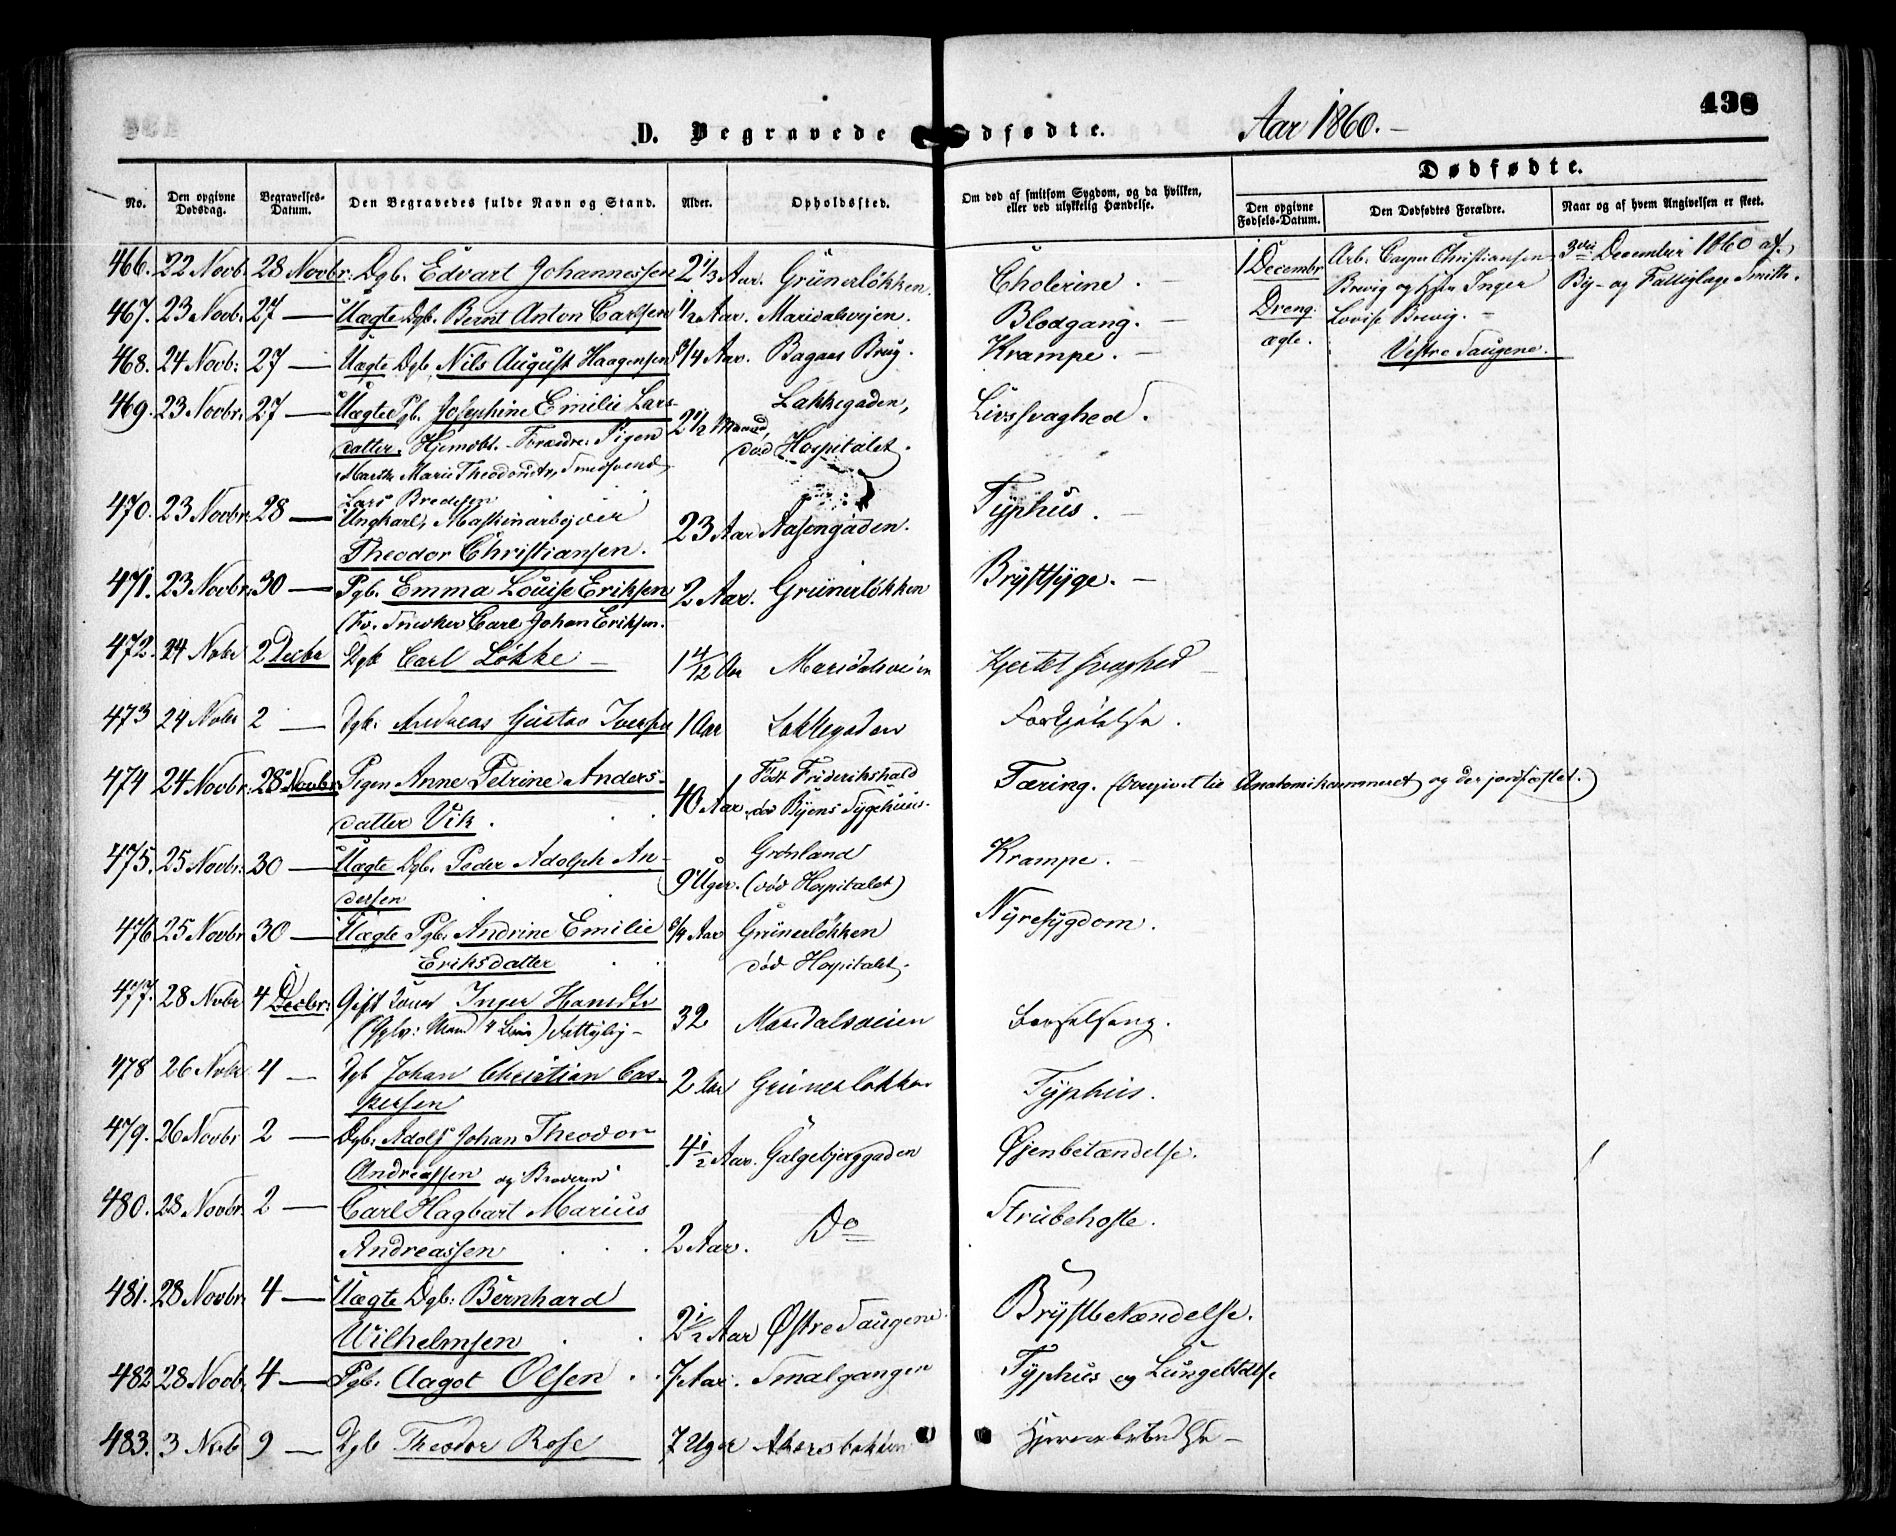 438
D. Begravede dfødte.
Aar 1860.
Dødfødte.
No.
Den opgivne Dødsdag.
Begravelses-Datum.
Den Begravedes fulde Navn og Stand.
Alder.
Opholdssted.
Om død af smitsom Sygdom, og da hvilken, eller ved ulykkelig Hændelse.
Den opgivne Fødsels-Datum.
Den Dødfødtes Forældre.
Naar og af hvem Angivelsen er skeet.
466. 22 Novb. 28 Novbr. Dgb. Edvart Johannessen 2 1/3 Aar. Grünerløkken. Cholerine.
1 Decembr Arb. Casper Christiansen 3die December 1860 af
Brevig og Inger By- og Fattiglæge Smith.
467. 23 Novb. 27 — Uægte Dgb. Bernt Anton Carlsen 1/2 Aar. Maridalsvejen. Blodgang.
Dreng. Lovise Brevig.
ægte. Vestre Saugene.
468. 24 Novb. 27 — Uægte Dgb. Nils August Haagensen 3/4 Aar. Bagaas Brug. Krampe.
469. 23 Novbr. 27 — Uægte Pgb. Josephine Emilie Lars- 2 1/2 Maaned Lakkegaden, Livssvaghed.
datter. Hjemdbt. Forældre: Pigen død Hospitalet.
Marthe Marie Smedsvend
Lars Bredesen
470. 23 Novbr. 28 — Ungkarl, Maskinarbejder
Theodor Christiansen. 23 Aar Aasengaden. Typhus.
471. 23 Novbr. 30 — Pgb. Emma Louise Eriksen 2 Aar. Grünerløkken Brystsyge.
(Fr. Snedker Carl Johan Eriksen.
472. 24 Nobr 2 Decbr Dgb Carl Løkke 1 4/12 Aar Maridalsveien Hjertesvaghed
473 24 Nobr 2 — Dgb. Andreas Gustav Iversen 1 Aar Lakkegaden Forkjølelse.
474 24 Novbr. 28 Novbr. Pigen Anne Petrine Anders- 40 Aar. Født Friderikshald Tæring. (Overgivet til Anatomikammeret og der jordfæstet.)
datter Vik. død Byens Sygehuus.
475. 25 Novbr. 30 — Uægte Dgb. Peder Adolph An- 9 Uger. Grønland Krampe.
dersen (død Hospitalet)
476 25 Novbr 30 — Uægte Pgb. Andrine Emilie 3/4 Aar Grünerløkken Nyresygdom.
Eriksdatter død Hospitalet.
477. 28 Nobr 4 Decbr. Gift Inger 32 Maridalsveien Barselseng.
478 26 Nobr 4 — Dgb Johan Christian Cas- 2 Aar Grünerløkken Typhus.
persen
479. 26 Novbr 2 — Dgb. Adolf Johan Theodor 4 1/2 Aar. Galgebjerggaden Øjenbetændelse.
Andreassen og Broderen
480. 28 Novbr. 2 — Carl Hagbart Marius
Andreassen 2 Aar. Do Strubehoste.
481. 28 Novbr. 4 — Uægte Dgb. Bernhard
Wilhelmsen 2 1/2 Aar Østre Saugene. Brystbetændelse.
482 28 Novb. 4 — Pgb. Aagot Olsen 7 Aar. Smalgangen Typhus og
483. 3 Novb 9 — Dgb Theodor Rose 7 Uger Akersbakken